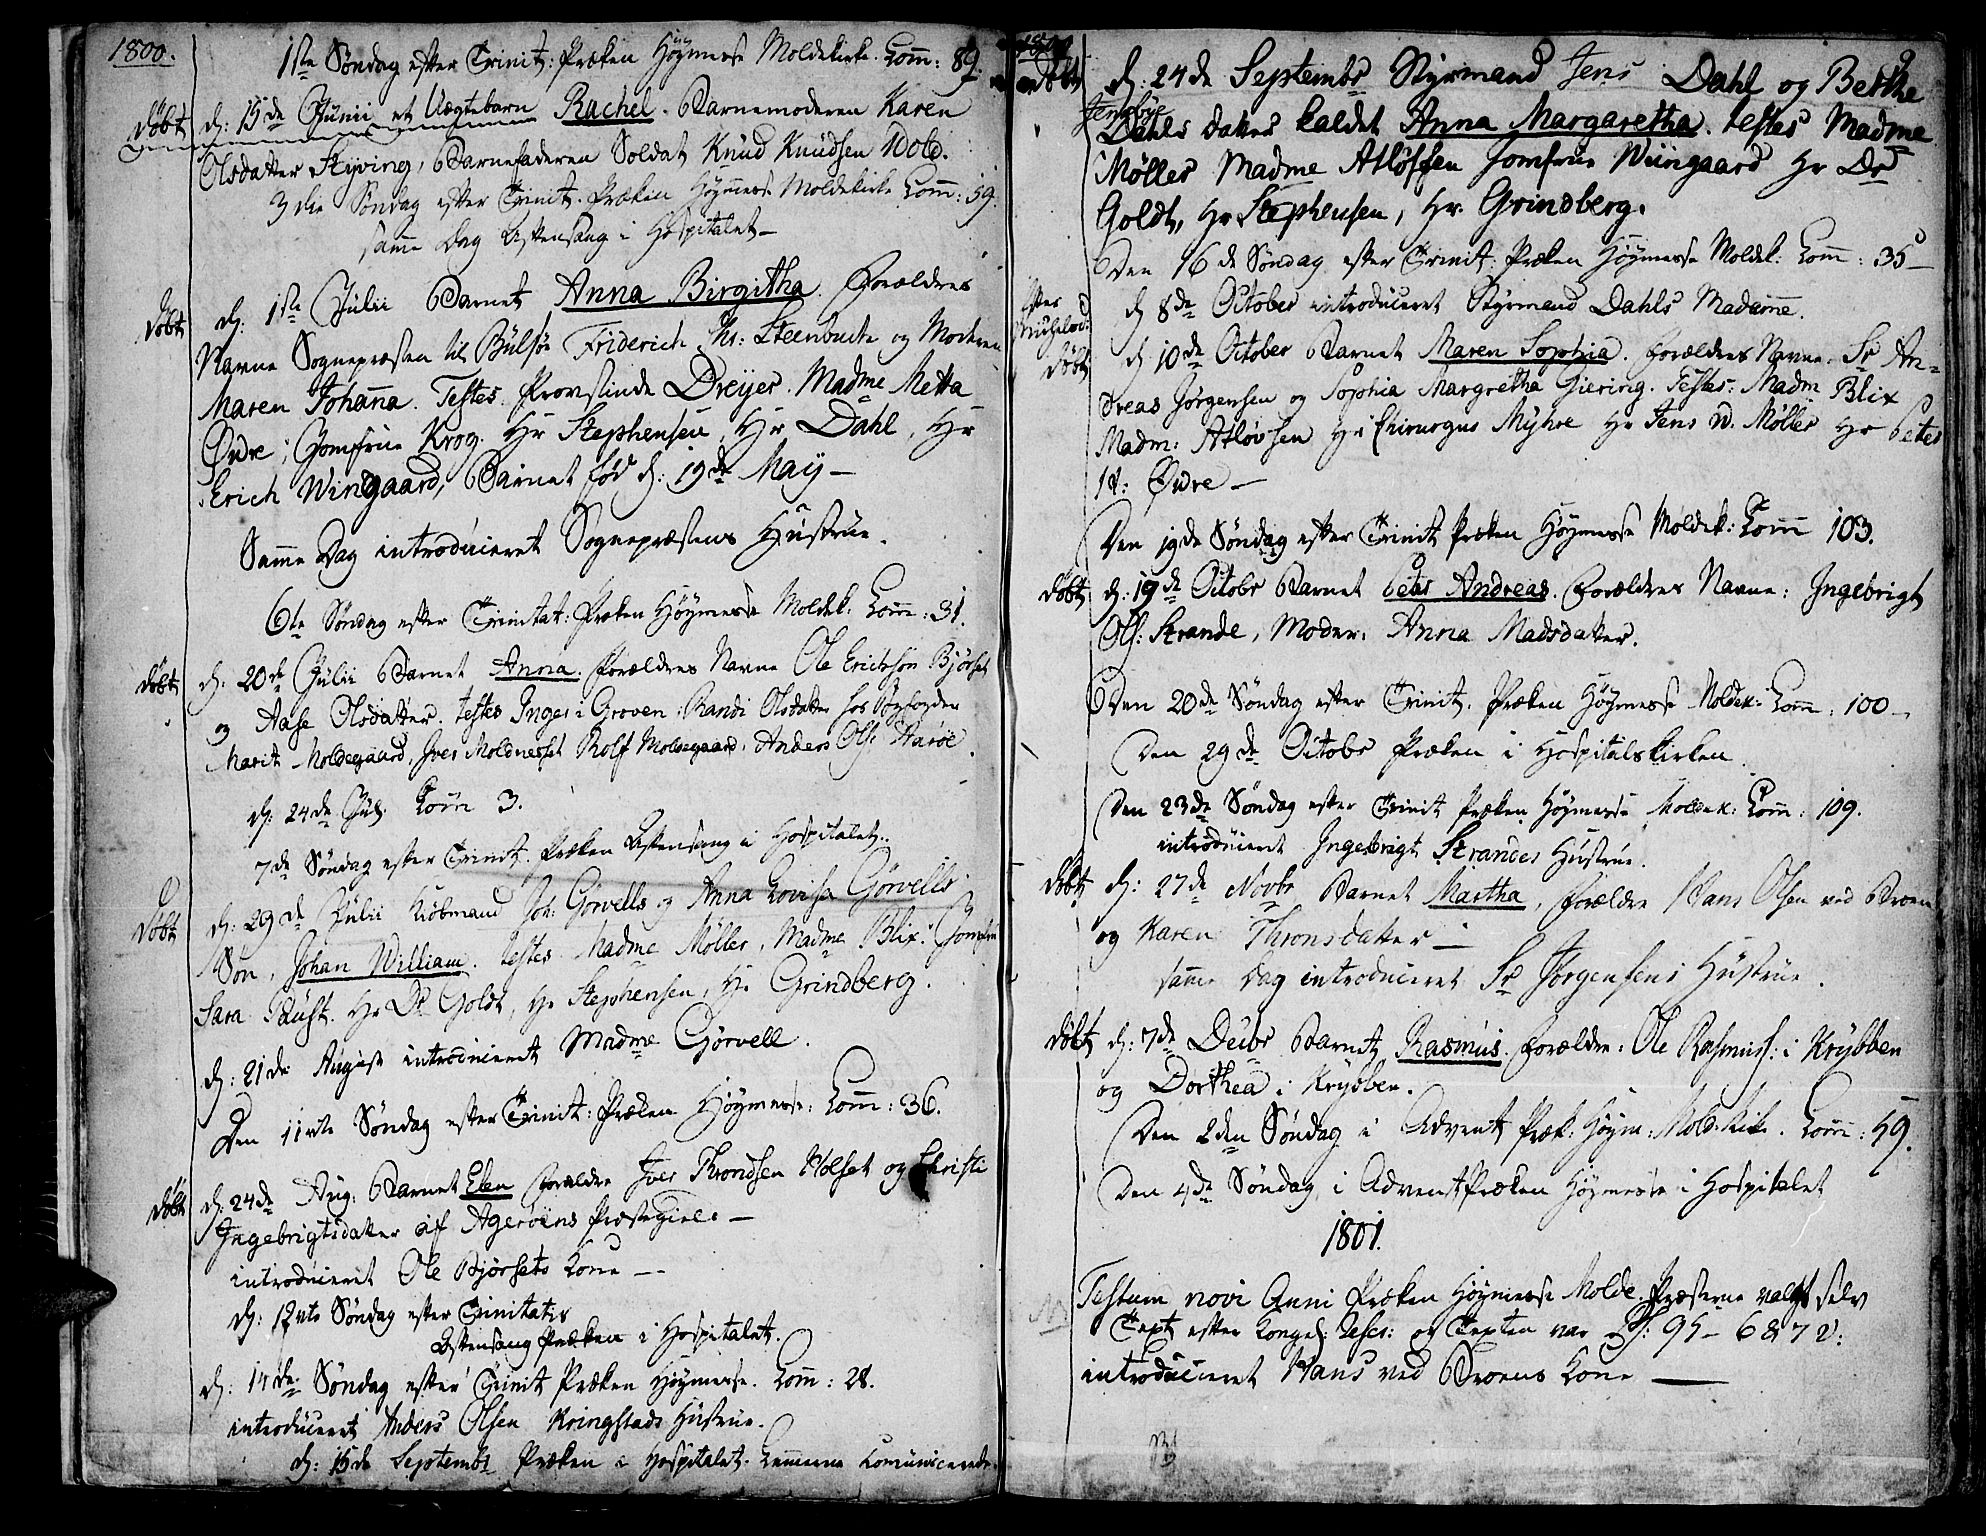 1800.
1ste Søndag efter Trinit: Præken Høymesse Moldekirke. Comm: 89.
døbt d: 15de Junii et Uægtebarn Rachel. Barnemoderen Karen
Olsdatter Styving, Barnefaderen Soldat Knud Knudsen Dold.
3die Søndag efter Trinit. Præken Høymesse Moldekirke Comm: 59.
samme Dag Aftensang i Hospitalet -
døbt d: 1ste Julii Barnet Anna Birgitha. Forældres
Navne Sognepræsten til Bülsøe Friderich Chr: Steenbuch og Moderen
Maren Johanna. Testes. Provstinde Dreyer. Madme Metta
Øvre, Jomfrue Krog. Hr Stephensen, Hr Dahl, Hr
Erich Wingaard, Barnet fød d: 19de May -
Samme Dag introduceret Sognepræstens Hustrue.
6te Søndag efter Trinitat: Præken Høymesse Moldek: Comm: 31.
døbt d: 20de Julii Barnet Anna. Forældres Navne Ole Erichsøn Bjørset
og Aase Olsdatter. testes Inger i Groven, Randi Olsdatter hos Byefogden
Marit Moldegaard, Iver Moldnesset Rolf Moldegaard, Anders Ols:
d: 24de Jul. Comm 3.
7de Søndag efter Trinit. Præken Aftensang i Hospitalet.
døbt d: 29de Julii Kiøbmand Joh: Gørvells og Anna Lovisa Gørvells
Søn, Johan William. testes Madme Møller, Madme Blix. Jomfrue
Sara Dust. Hr Dr Goldt, Hr Stephensen, Hr Grindberg.
d: 21de August introduceret Madme Gørvell.
Den 11vte Søndag efter Trinit: Præken Høymesse: Comm: 36.
døbt d: 24de Aug: Barnet Elen Forældre Iver Throndsen Holset og Christi
Ingebrigtsdatter af Agerøens Præstegield -
introduceret Ole Bjørsets Kone -
d: 12vte Søndag efter Trinitatis
Aftensang Præken i Hospitalet.
d: 14de Søndag efter Trinit Præken Høymesse. Comm: 28.
introduceret Anders Olsen Kringstads Hustrue.
d: 15de Septembr Præken i Hospitalet. Lemmerne Communicerede.
1800
døbt d: 24de Septembr Styrmand Jens Dahl og Berthe
Dahls datter kaldet Anna Margaretha. testes Madme
Møller Madme Atløffsen Jomfrue Wiingaard Hr Dr
Goldt, Hr Stephensen, Hr. Grindberg.
Den 16de Søndag efter Trinit. Præken Høymesse Moldek: Comm: 35 -
d 8de October introduceret Styrmand Dahls Madamme.
døbt d: 10de October Barnet Maren Sophia. Forældres Navne. Sr An-
dreas Jørgensen og Sophia Margretha Giering. Testes: Madm Blix
Madm: Atløvsen Hr Chirurgus Myhre Hr Jens N. Møller Hr Peter
A: Øvre -
Den 19de Søndag efter Trinit Præken Høymesse Moldek: Comm 103.
døbt d: 19de Octobr Barnet Peter Andreas. Forældres Navne: Ingebrigt
Ols: Strande, Moder: Anna Madsdatter.
Den 20de Søndag efter Trinit. Præken Høymesse Moldek: Comm: 100 -
Den 29de Octobr Præken i Hospitalskirken.
Den 23de Søndag efter Trinit Præken Høymesse Moldek: Comm: 109.
introduceret Ingebrigt Strandes Hustrue.
døbt d: 27de Novbr Barnet Martha, Forældre Hans Olsen ved Broen
og Karen Thronsdatter -
samme Dag introduceret Sr Jørgensens Hustrue.
døbt d: 7de Decbr Barnet Rasmus. Forældre: Ole Rasmuss: i Krybben
og Dorthea i Krybben.
Den 2den Søndag i Advent Præk: Høym: Mold: Kirke. Comm: 59.
Den 4de Søndag i Advent Præken Høymesse i Hospitalet
1801.
Festum novi Anni Præken Høymesse Molde. Præsterne valgt selv
Text efter Kongel: Rescr: og Texten var Ps: 95 - 6 & 7 v:
introduceret Hans ved Broens Kone -